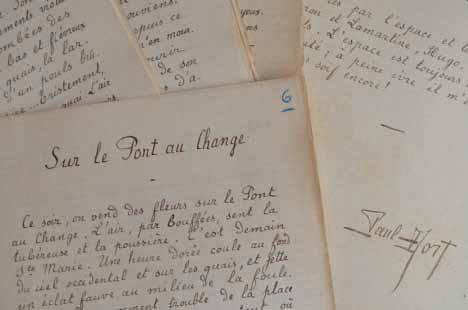 ments
ombées des
bas et fiévreux
quais, la lar.
d'un pouls bib.
et... tristement,
quai. L'air
puis ce
n'en moia.
ourir
de son
s d'a.
yeux.
es par l'espace et l
ron et Lamartine, Hugo,
L'espace est toujours
à peine vivre il m'
soif encore!
—
Paul Fort
6
Sur le Pont au Change
-
Ce soir, on vend des fleurs sur le Pont
au Change. L'air, par bouffées, sent la
tubéreuse et la poussière. C'est demain
Ste Marie. Une heure dorée coule au fond
du ciel occidental et sur les quais, et jette
un éclat fauve au milieu de la foule.
mment trouble de la place
tent où